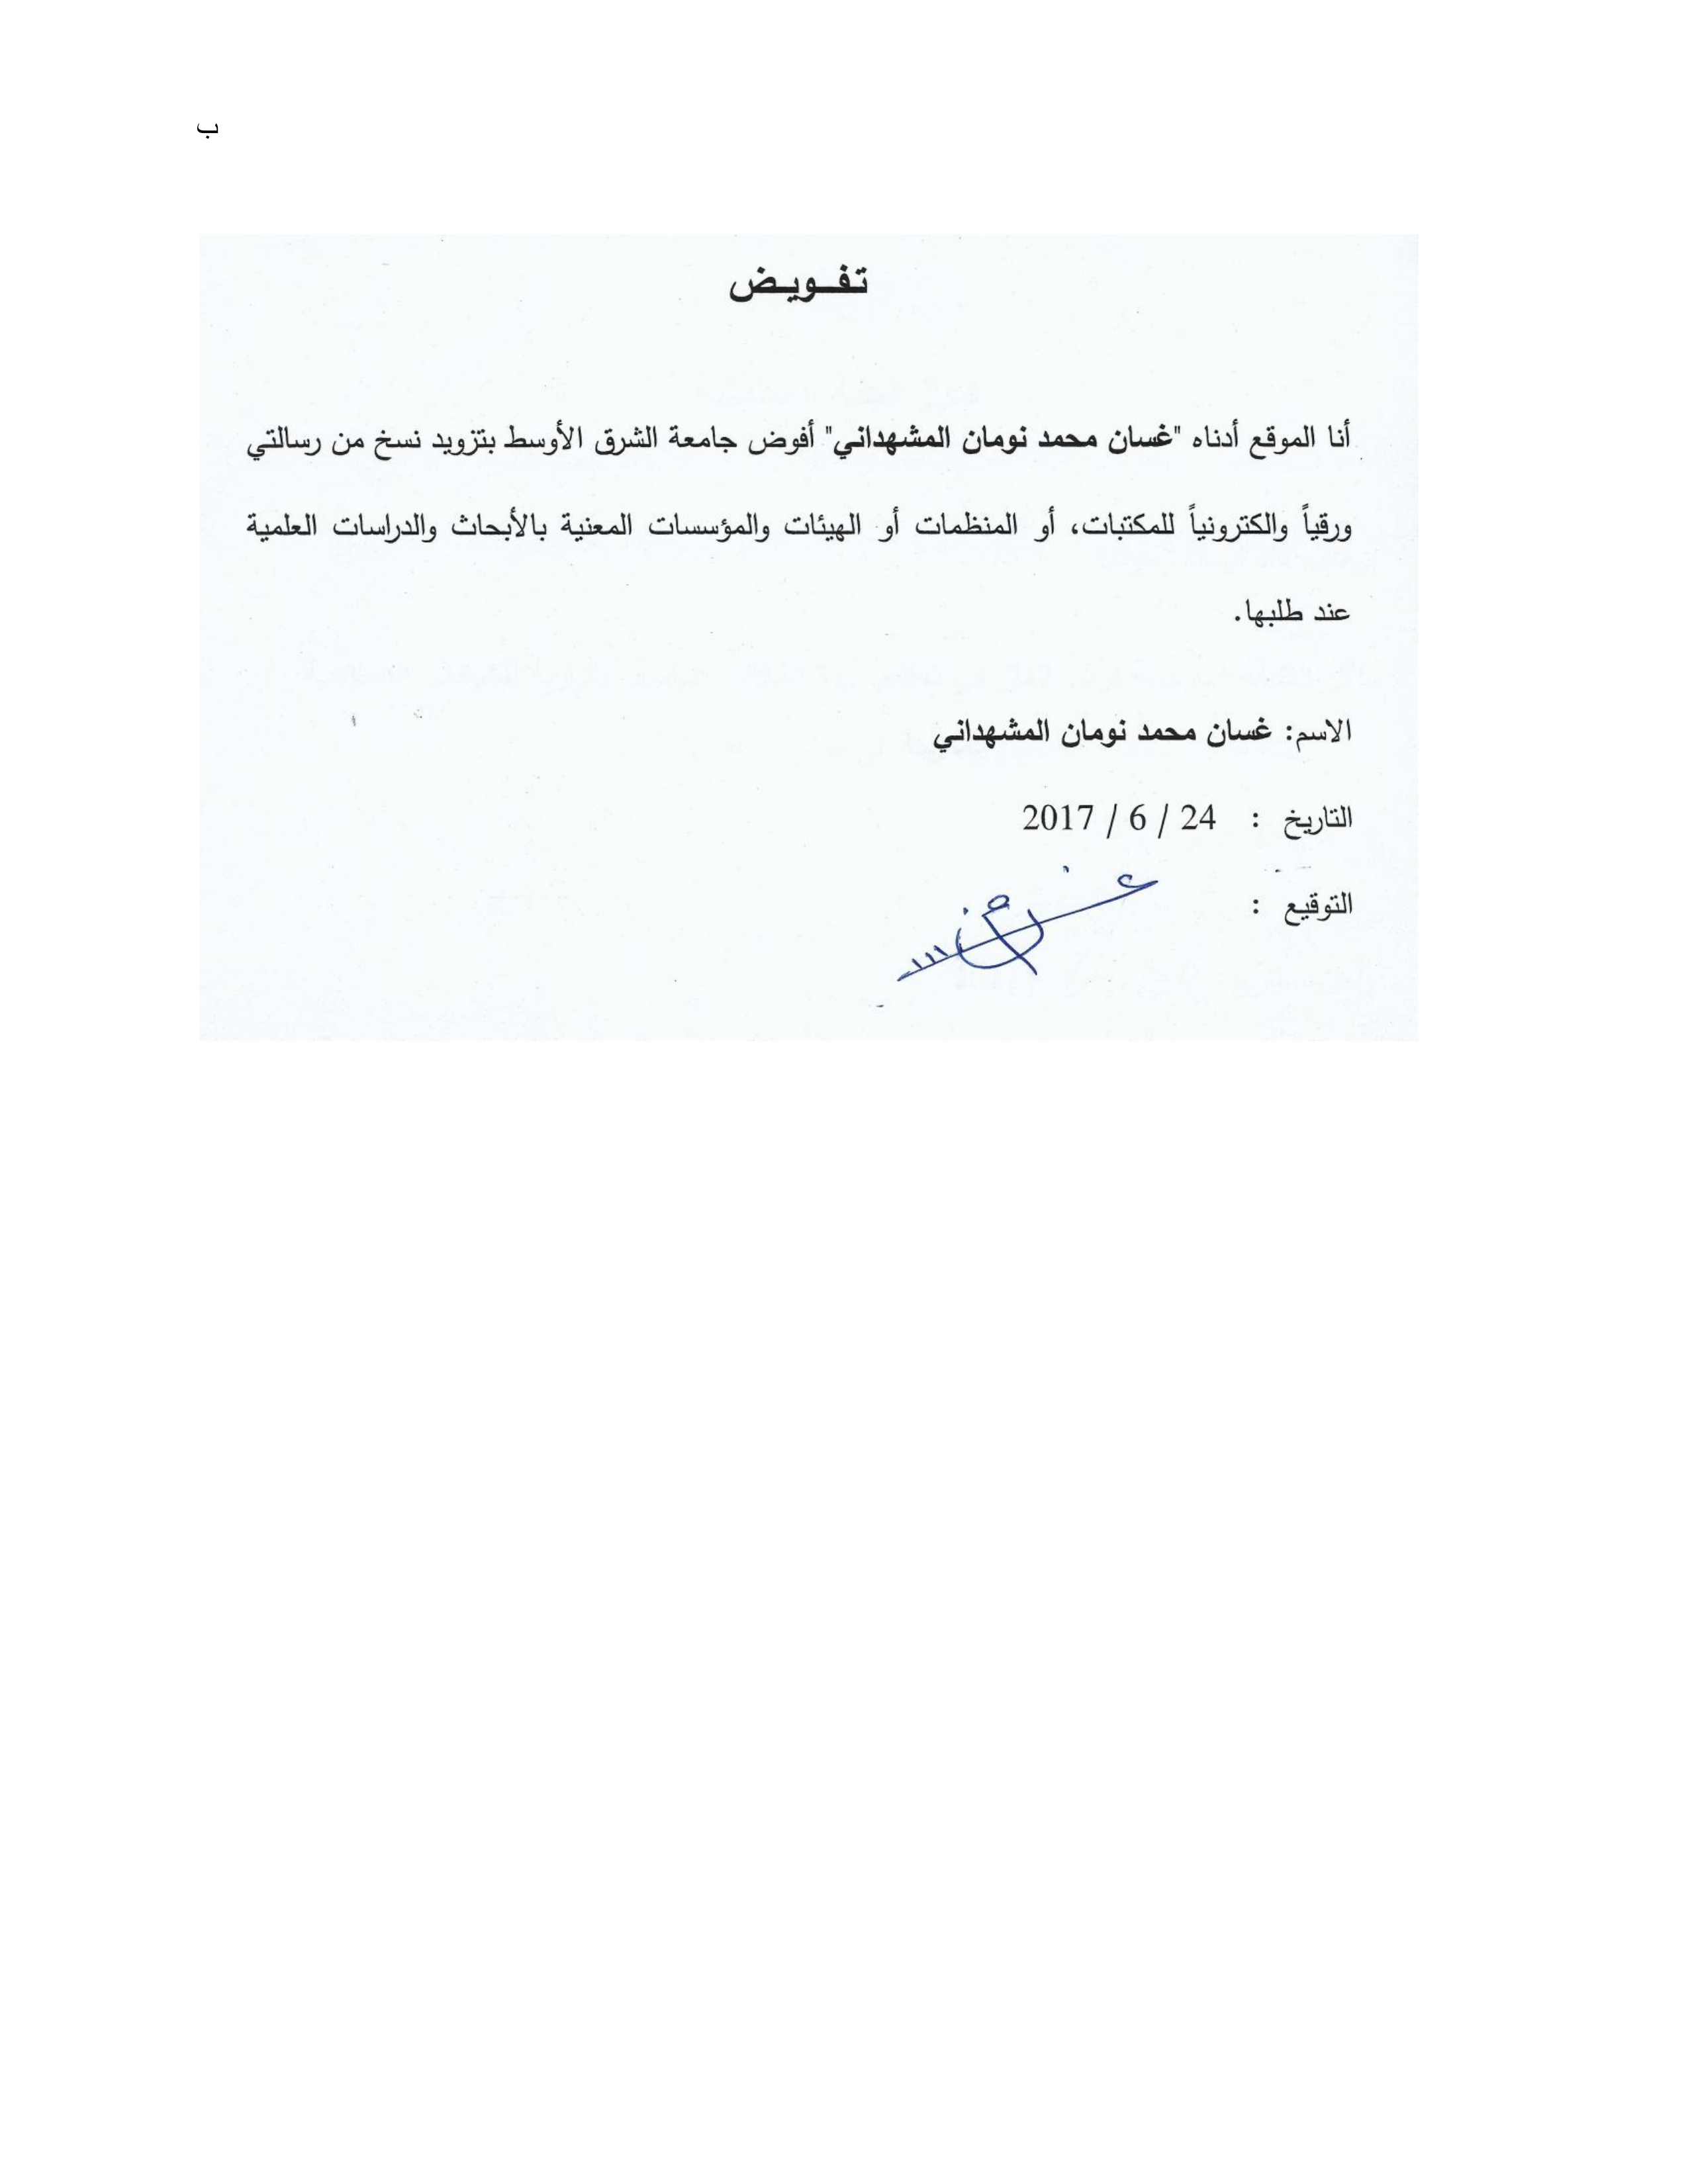 ب
تفـويـض
أنا الموقع أدناه "غسان محمد نومان المشهداني" أفوض جامعة الشرق الأوسط بتزويد نسخ من رسالتي
ورقياً والكترونياً للمكتبات، أو المنظمات أو الهيئات والمؤسسات المعنية بالأبحاث والدراسات العلمية
عند طلبها.
الاسم: غسان محمد نومان المشهداني
التاريخ : 24 / 6 / 2017
التوقيع :